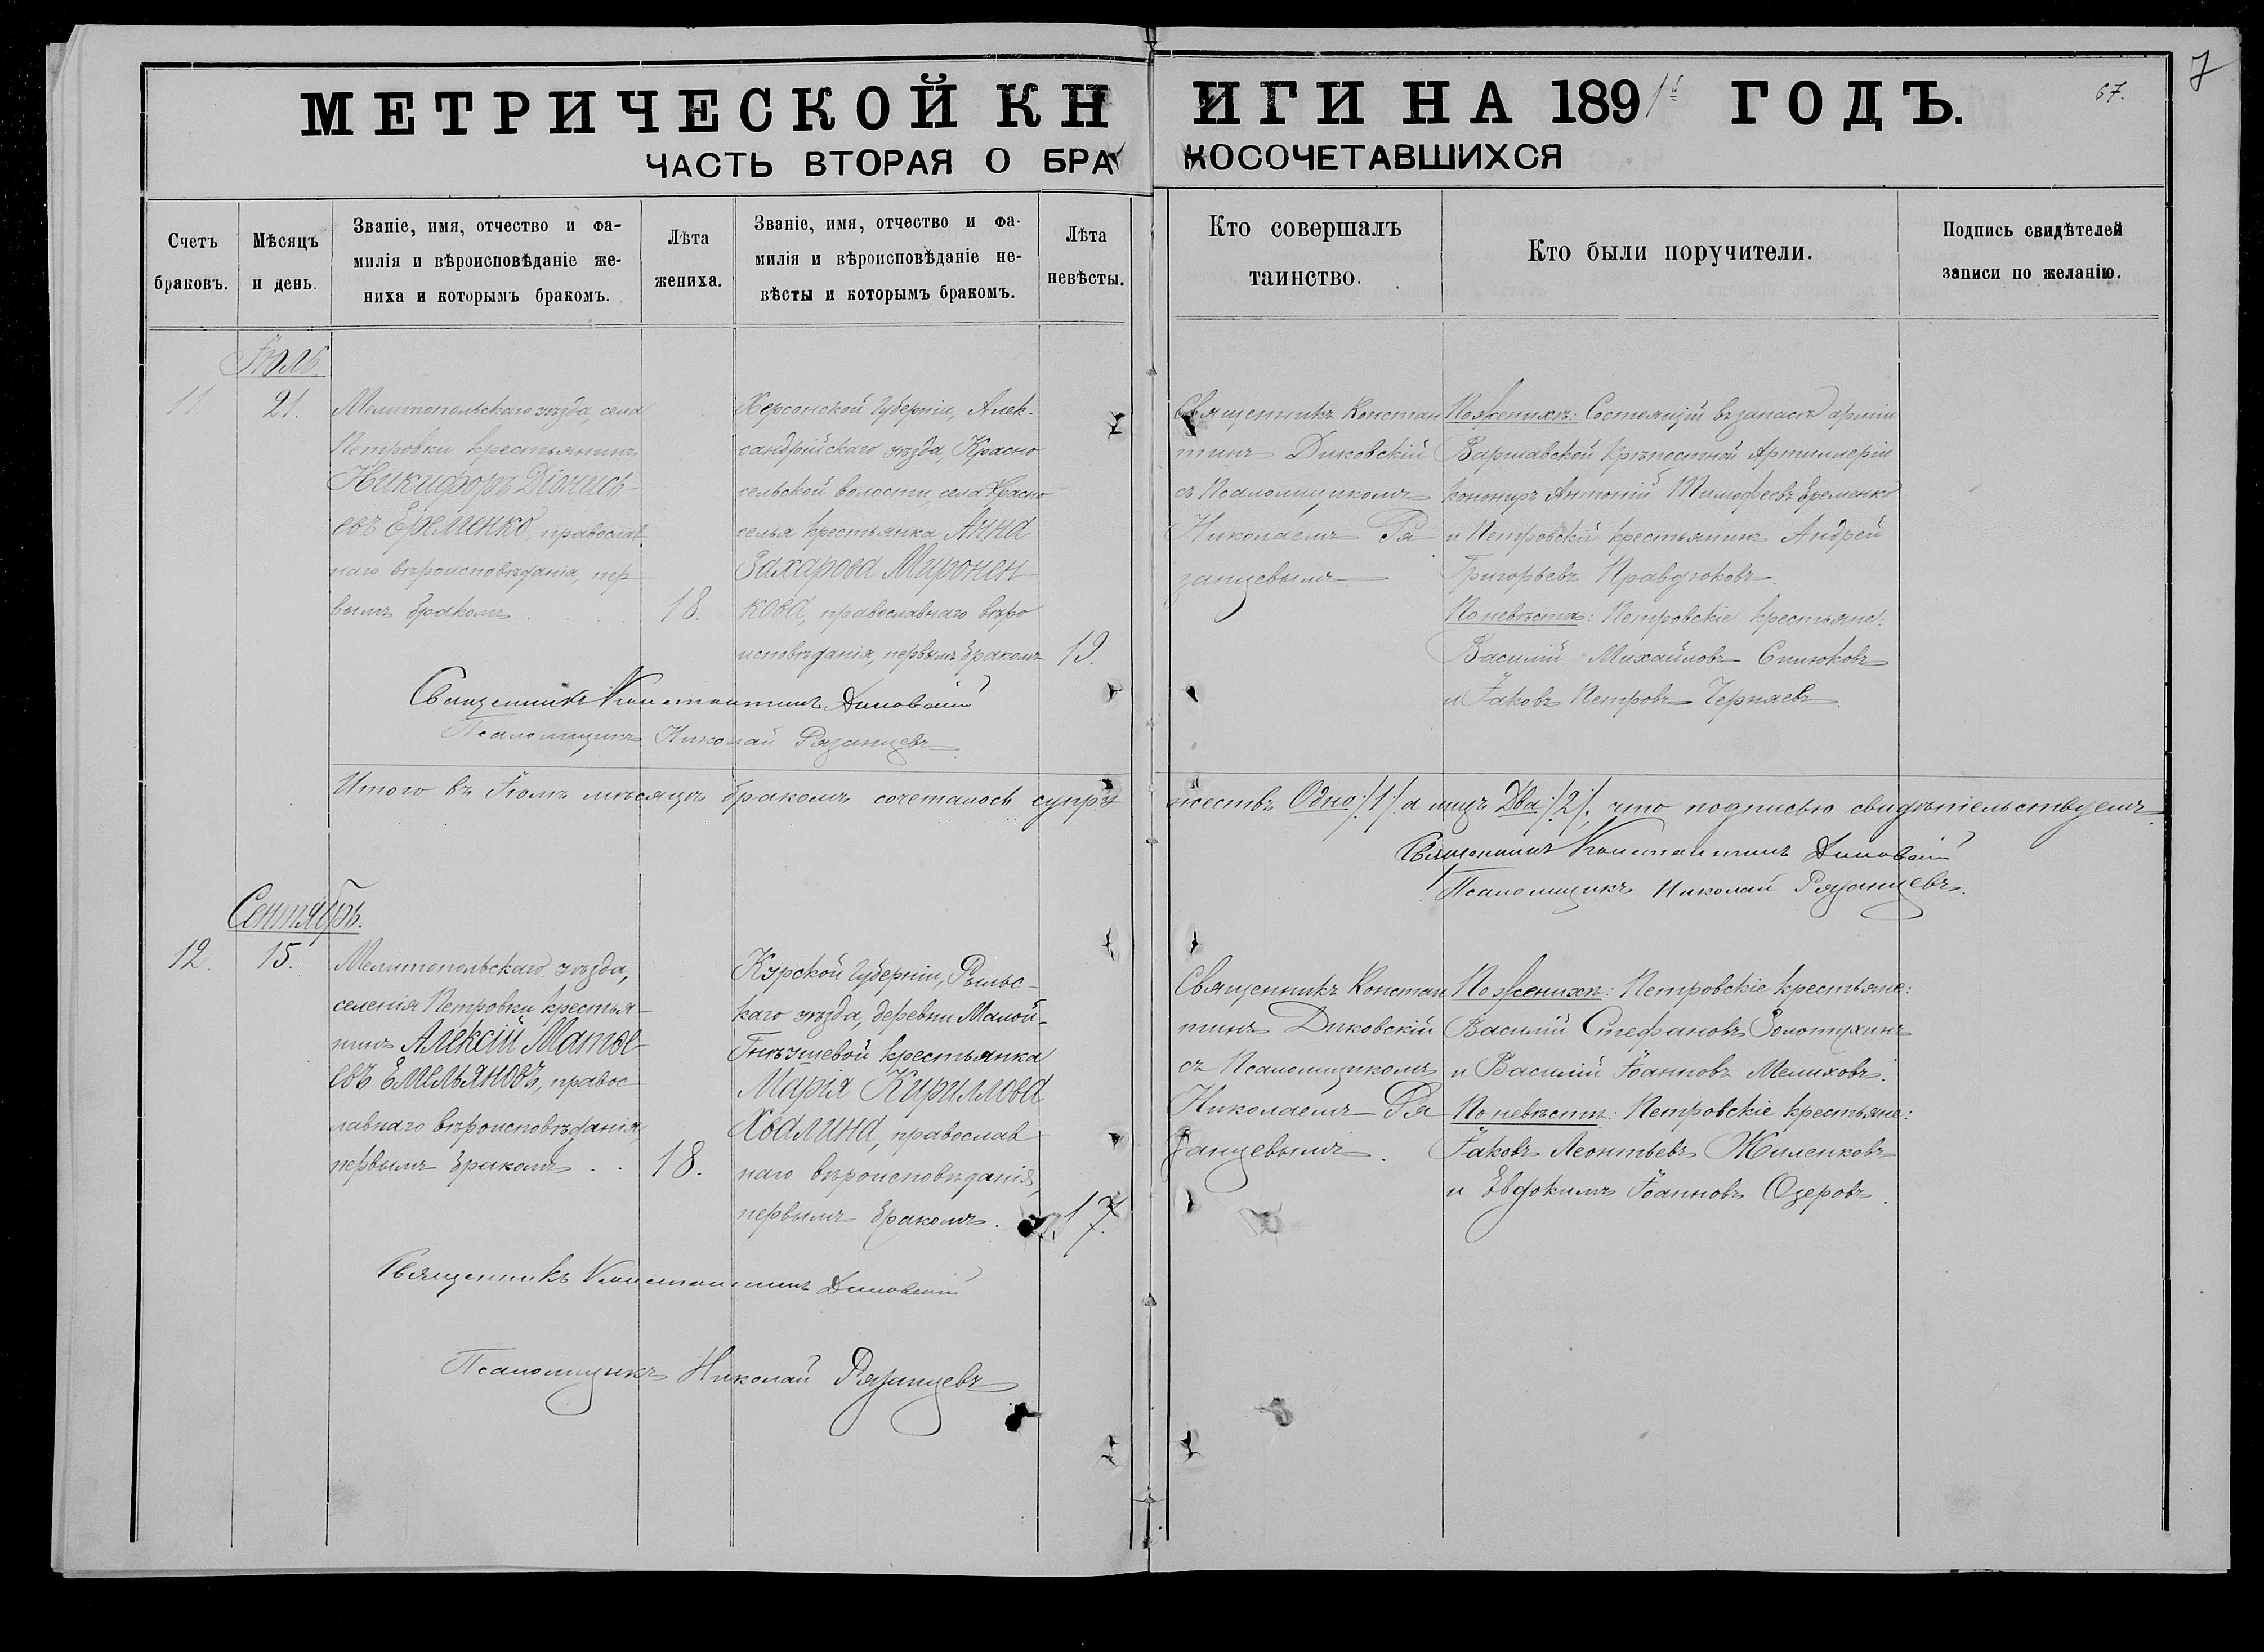 МЕТРИЧЕСКОЙ КНИГИ НА 1891й ГОДЪ.
67.
7
ЧАСТЬ ВТОРАЯ О БРАКОСОЧЕТАВШИХСЯ
Счетъ
браковъ.
Мѣсяцъ
и день.
Званіе, имя, отчество и фа-
милія и вѣроисповѣданіе же-
ниха и которымъ бракомъ.
Лѣта
жениха.
Званіе, имя, отчество и фа-
милія и вѣроисповѣданіе не-
вѣсты и которымъ бракомъ.
Лѣта
невѣсты.
Кто совершалъ
таинство.
Кто были поручители.
Подпись свидѣтелей
записи по желанію.
Іюль
11.
21.
Мелитопольскаго уѣзда, села
Петровки крестьянинъ
Никифоръ Діонись-
евъ Еременко, православ
наго вѣроисповѣданія, пер
вымъ бракомъ
18.
Херсонской Губерніи, Алек-
сандрійскаго уѣзда, Красно
сельской волости, села Красно
селья крестьянка Анна
Захарова Миронен
кова, православнаго вѣро
исповѣданія, первымъ бракомъ
19.
Священникъ Констан
тинъ Диковскій
съ Псаломщикомъ
Николаемъ Ря
занцевымъ
По женихѣ: Состоящій въ запасѣ арміи
Варшавской Крѣпостной Артиллеріи
конониръ Антоній Тимофеевъ Еременко
и Петровскій крестьянинъ Андрей
Григорьевъ Правдюковъ.
По невѣстѣ: Петровскіе крестьяне:
Василій Михайловъ
и Іаковъ Петровъ Черняевъ.
Священникъ Константинъ Диковскій
Псаломщикъ Николай Рязанцевъ
Итого въ Іюлѣ мѣсяцѣ бракомъ сочеталось супружествъ Одно /:1:/ а лицъ Два /:2:/, что подписью свидѣтельствуемъ
Священникъ Константинъ Диковскій
Псаломщикъ Николай Рязанцевъ.
Сентябрь.
12.
15.
Мелитопольскаго уѣзда,
селенія Петровки крестья-
нинъ Алексій Матѳе-
евъ Емельяновъ, правос
лавнаго вѣроисповѣданія
первымъ бракомъ . .
18.
Курской Губерніи, Рыльс-
каго уѣзда, деревни Малой-
Гнѣушевой крестьянка
Марія Кириллова
Хвалина, православ
наго вѣроисповѣданія,
первымъ бракомъ.
17.
Священникъ Констан
тинъ Диковскій
съ Псаломщикомъ
Николаемъ Ря
занцевымъ.
По женихѣ: Петровскіе крестьяне:
Василій Стефановъ Золотухинъ
и Василій Іоанновъ Мелиховъ.
По невѣстѣ: Петровскіе крестьяне:
Іаковъ Леонтьевъ Жиленковъ
и Евдокимъ Іоанновъ Озеровъ.
Священникъ Константинъ Диковскій
Псаломщикъ Николай Рязанцевъ